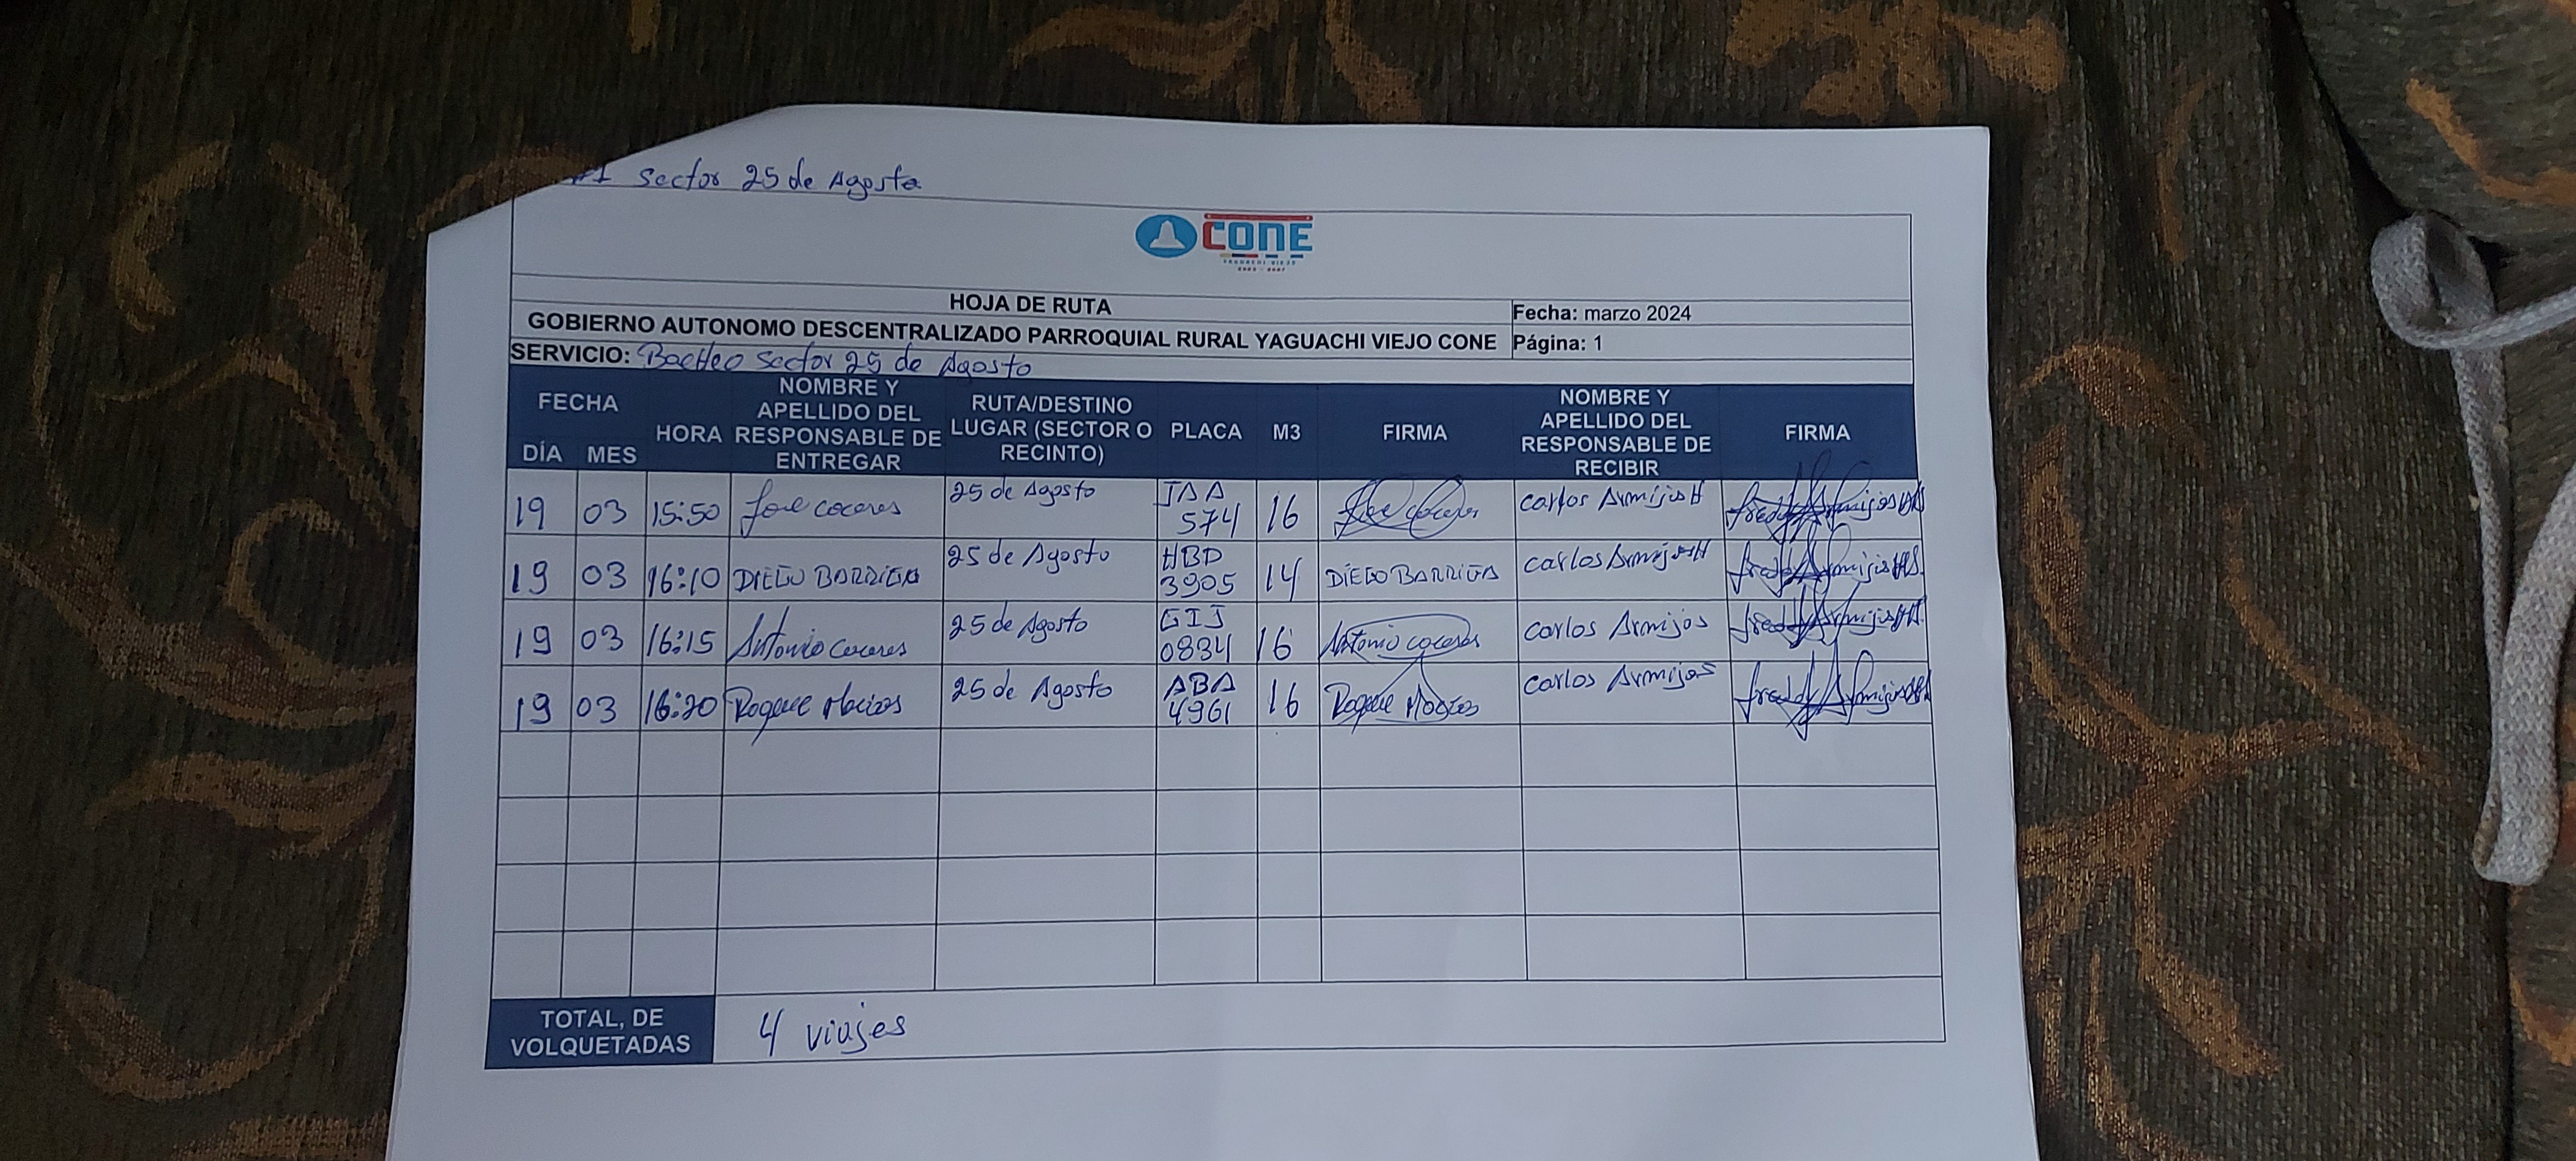 #1 Sector 25 de Agosto
CONE
YAGUACHI VIEJO
2023 - 2027
HOJA DE RUTA
Fecha: marzo 2024
GOBIERNO AUTONOMO DESCENTRALIZADO PARROQUIAL RURAL YAGUACHI VIEJO CONE
Página: 1
SERVICIO: Bacheo Sector 25 de Agosto
FECHA
DÍA MES
HORA
NOMBRE Y
APELLIDO DEL
RESPONSABLE DE
ENTREGAR
RUTA/DESTINO
LUGAR (SECTOR O
RECINTO)
PLACA
M3
FIRMA
NOMBRE Y
APELLIDO DEL
RESPONSABLE DE
RECIBIR
FIRMA
19 03 15:50 Jose coceres 25 de Agosto JAA 574 16 Jose coceres Carlos Armijos H Freddy Armijos
19 03 16:10 DIEGO BARRIGA 25 de Agosto HBD 3905 14 DIEGO BARRIGA Carlos Armijos H Freddy Armijos
19 03 16:15 Antonio coceres 25 de Agosto GIJ 0834 16 Antonio coceres Carlos Armijos Freddy Armijos
19 03 16:20 Roque Macias 25 de Agosto ABA 4961 16 Roque Macias Carlos Armijos Freddy Armijos
TOTAL, DE
VOLQUETADAS
4 viajes